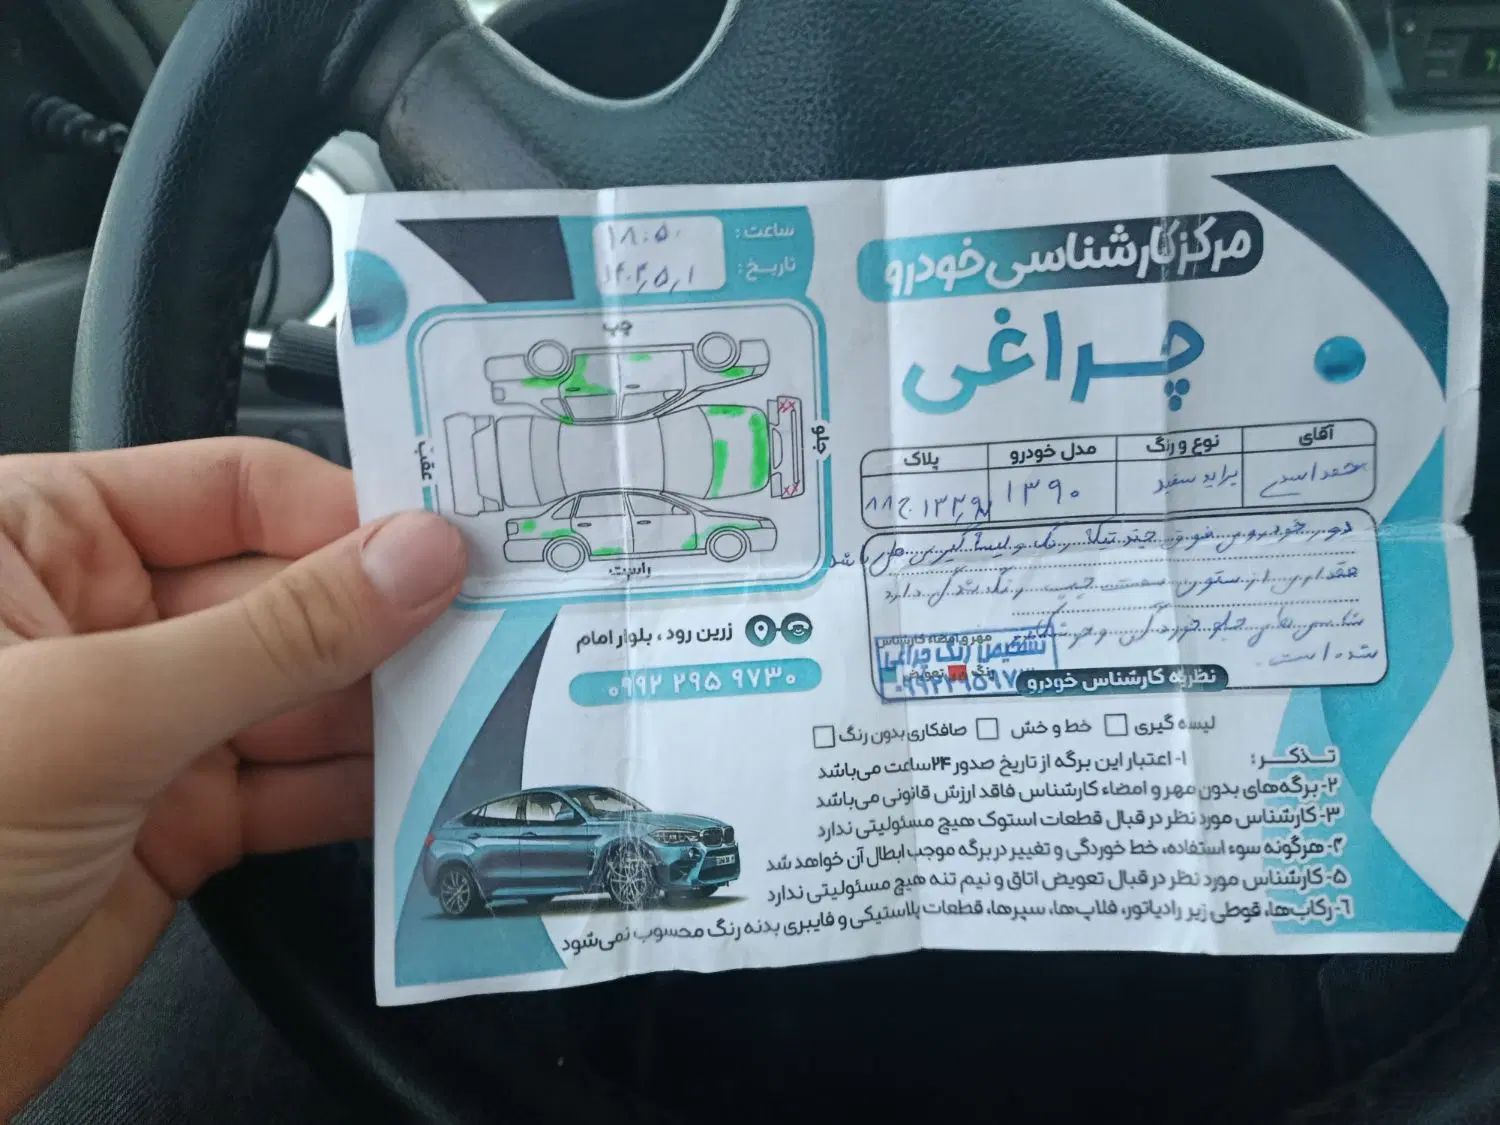 مرکز کارشناسی خودرو
چراغی
ساعت: ۱۸:۵۰
تاریخ: ۱۴۰۴/۵/۱
چپ
جلو
عقب
راست
آقای
نوع و رنگ
مدل خودرو
پلاک
پراید سفید
۱۳۹۰
دور خودروی فوق چند تیکه رنگ و لیسه گیری می باشد
مقداری از ستون سمت چپ رنگ شدگی دارد
شاسی های جلو خوردگی و
شده است.
مهر و امضاء کارشناس
تشخیص رنگ چراغی
رنگ
تعویض
نظریه کارشناس خودرو
زرین رود، بلوار امام
۰۹۹۲ ۲۹۵ ۹۷۳۰
لیسه گیری
خط و خش
صافکاری بدون رنگ
تذکر:
۱- اعتبار این برگه از تاریخ صدور ۲۴ ساعت می‌باشد
۲- برگه‌های بدون مهر و امضاء کارشناس فاقد ارزش قانونی می‌باشد
۳- کارشناس مورد نظر در قبال قطعات استوک هیچ مسئولیتی ندارد
۴- هرگونه سوء استفاده، خط خوردگی و تغییر در برگه موجب ابطال آن خواهد شد
۵- کارشناس مورد نظر در قبال تعویض اتاق و نیم تنه هیچ مسئولیتی ندارد
۶- رکاب‌ها، قوطی زیر رادیاتور، فلاپ‌ها، سپرها، قطعات پلاستیکی و فایبری بدنه رنگ محسوب نمی‌شود